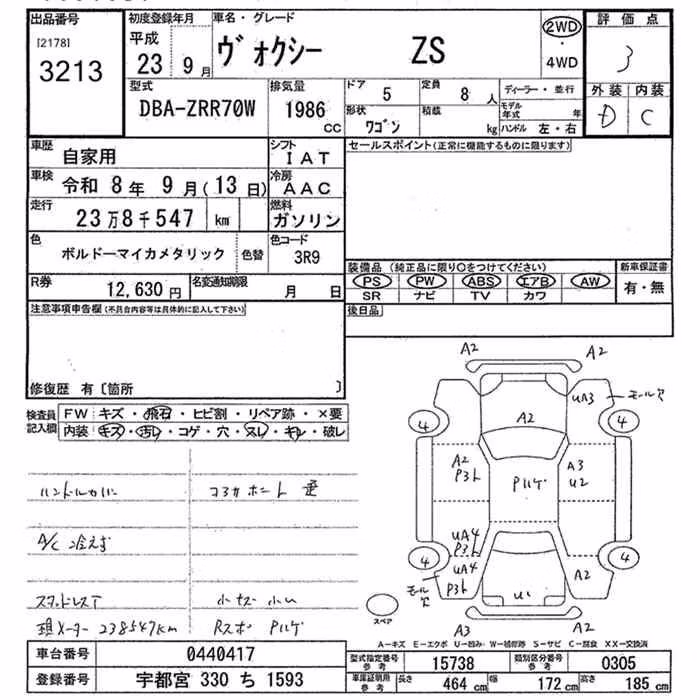 出品番号 初度登録年月 車名・グレード 評価点
[2178] 平成 ヴォクシー ZS 2WD
3213 23 9月 ・ 3
4WD
型式 排気量 ドア 5 定員 8人 ディーラー・並行 外装 内装
DBA-ZRR70W 1986 モデル年式 年 D C
cc 形状 ワゴン 積載 kg ハンドル 左・右
車歴 自家用 シフト IAT セールスポイント(正常に機能するものに限ります)
車検 令和 8年 9月(13日) 冷房 AAC
走行 23万8千547 km 燃料 ガソリン
色 ボルドーマイカメタリック 色替 色コード 3R9
装備品(純正品に限り○をつけてください) 新車保証書
PS PW ABS エアB AW 有・無
SR ナビ TV カワ
R券 12,630円 名変通知期限 月 日
後日品
注意事項申告欄(不具合内容等は具体的に記入して下さい)
修復歴 有〔箇所 〕
検査員記入欄 FW キズ・飛石・ヒビ割・リペア跡・×要
内装 キズ・汚レ・コゲ・穴・スレ・キレ・破レ
ハンドルカバー
A/C 冷えず
スタッドレスT 小キズ 小凹
現メーター 238547km Rスポ Pハゲ
A2 A2
UA3 モール穴
4 A2 4
A2 A3
P3 Pハゲ U2
UA4
P3
4 UA4 4
モール穴 P3 U1 A2
スペア A3 A2
A-キズ E-エクボ U-凹み W-補修跡 S-サビ C-腐食 XX-交換済
車台番号 0440417
登録番号 宇都宮 330 ち 1593
型式指定番号 参考 15738 類別区分番号 参考 0305
車庫証明用 参考 長さ 464cm 幅 172cm 高さ 185cm